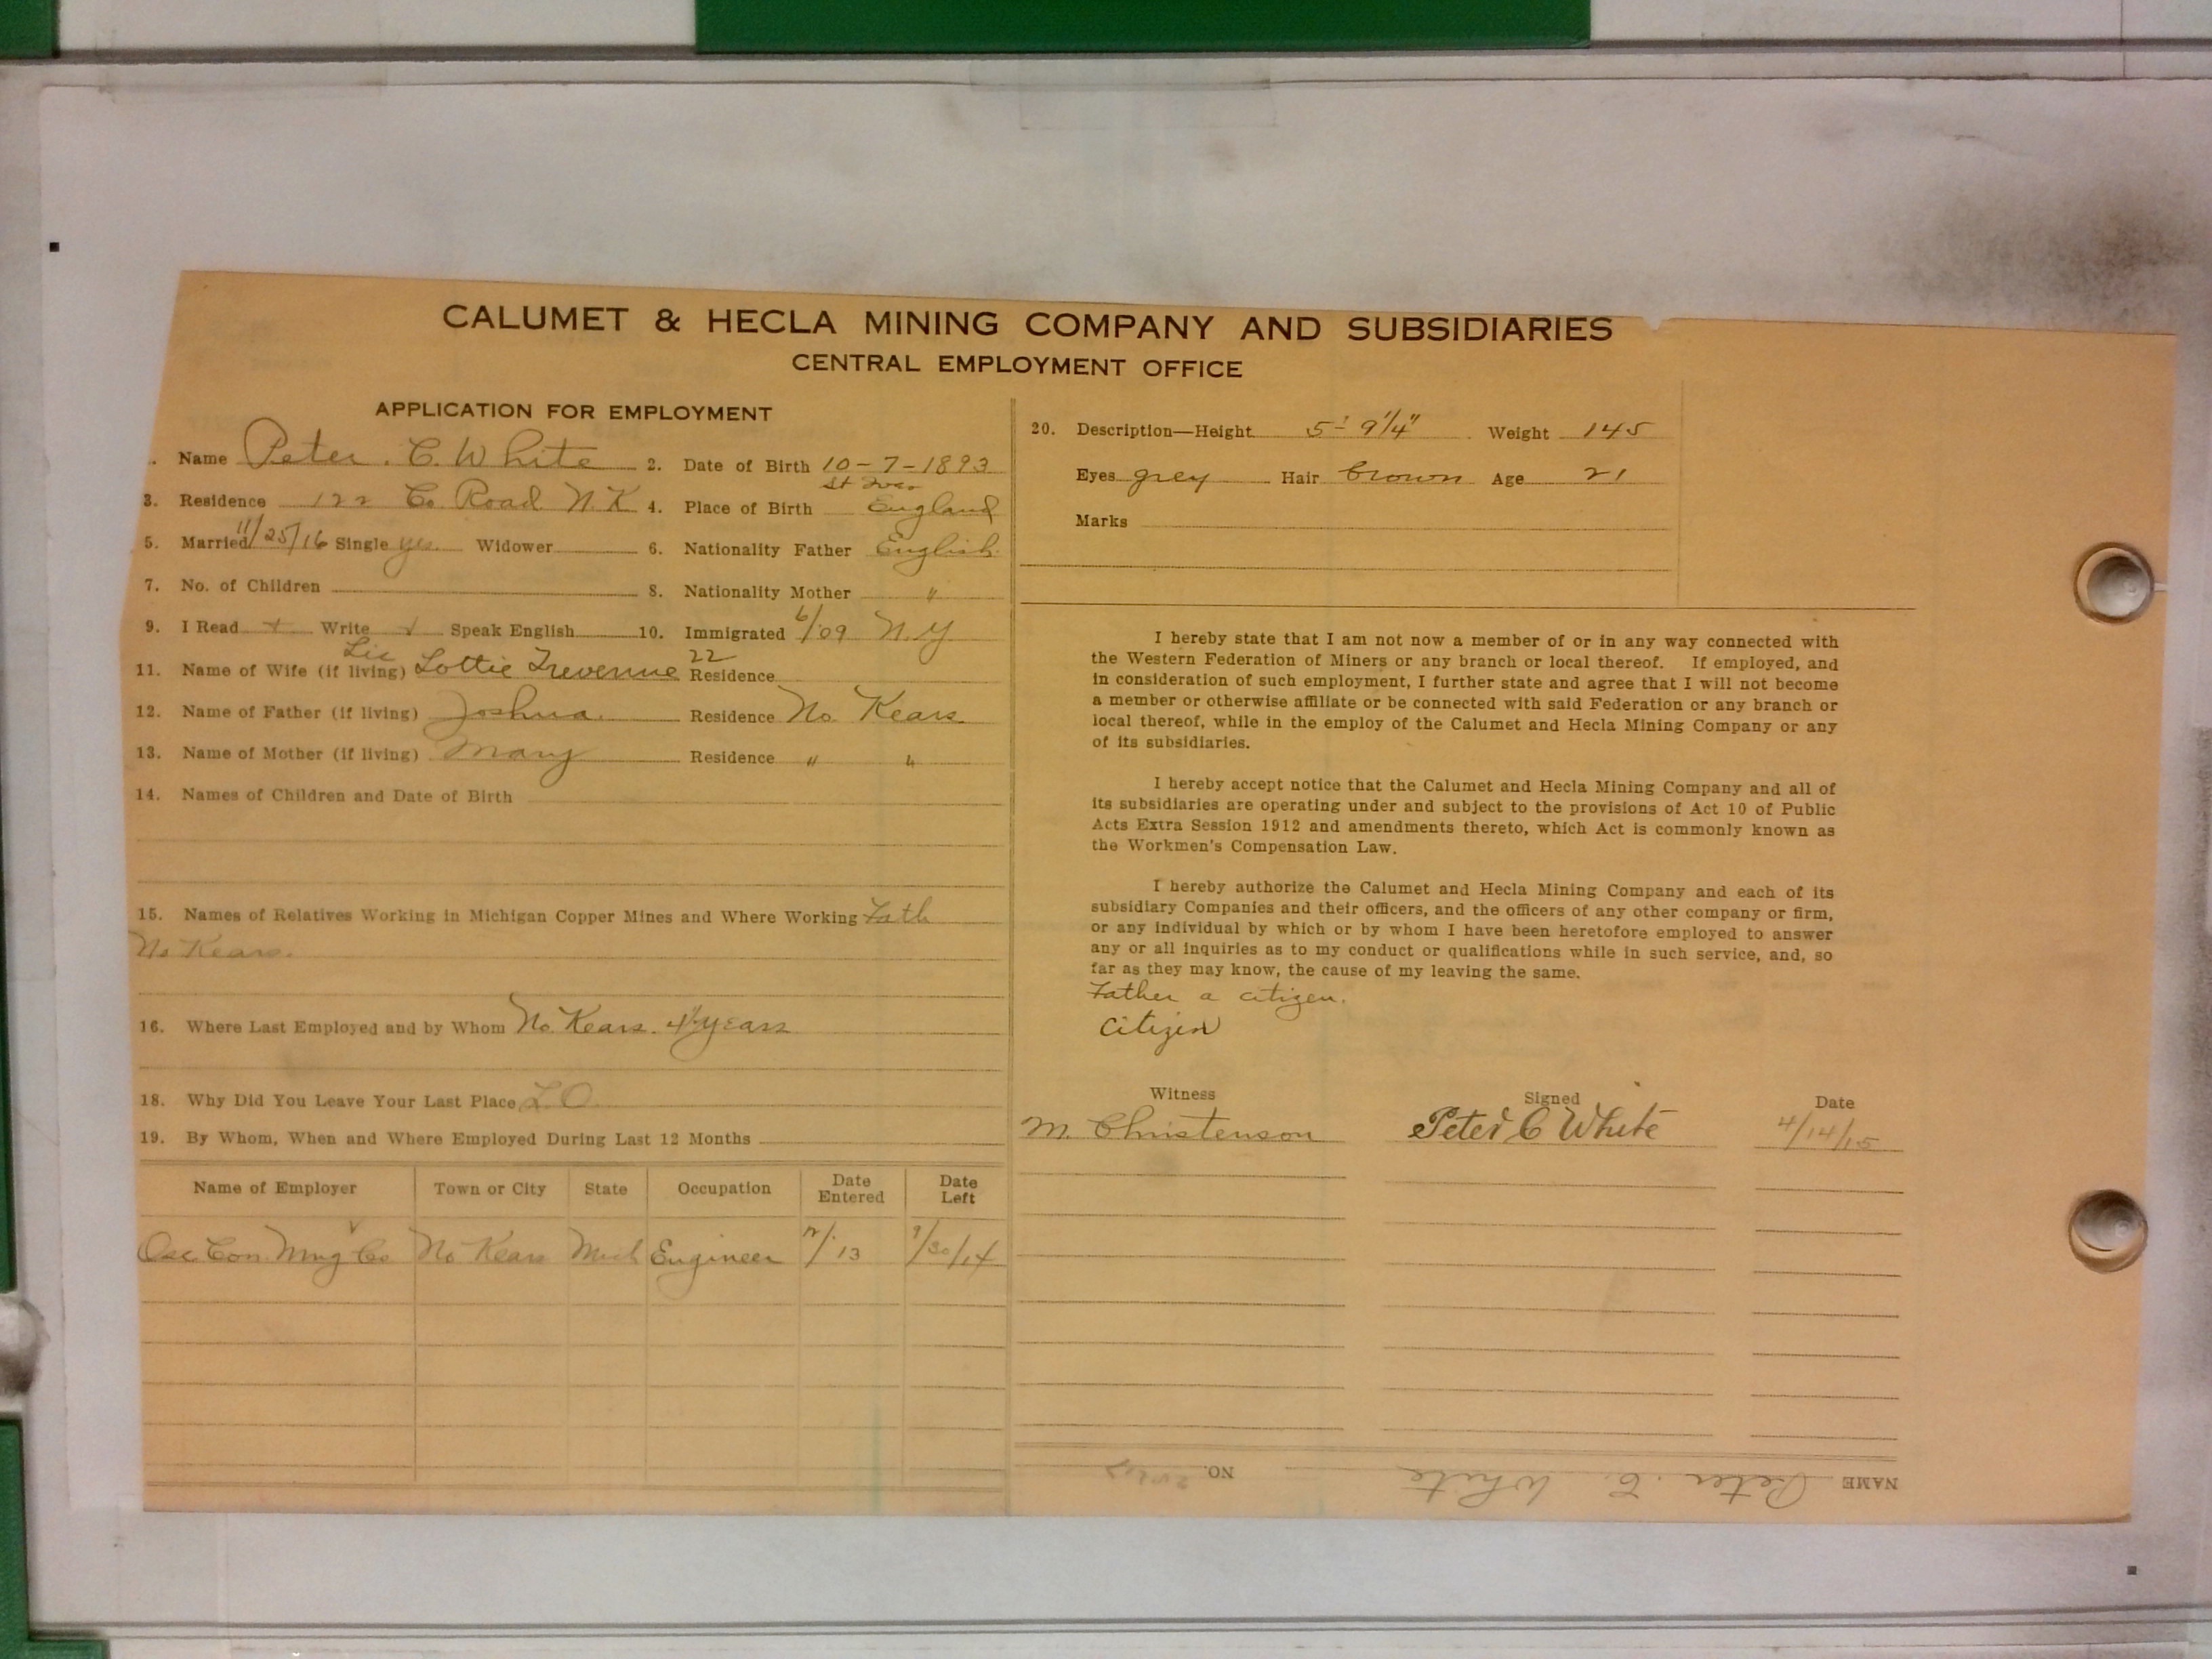 CALUMET & HECLA MINING COMPANY AND SUBSIDIARIES
CENTRAL EMPLOYMENT OFFICE
APPLICATION FOR EMPLOYMENT
. Name Peter. C. White 2. Date of Birth 10-7-1893
St Ives
3. Residence 122 Co. Road N. K 4. Place of Birth England
5. Married 11/25/16 Single yes Widower 6. Nationality Father English
7. No. of Children 8. Nationality Mother "
9. I Read + Write + Speak English 10. Immigrated 6/09 N.Y
Lic 22
11. Name of Wife (if living) Lottie Residence
12. Name of Father (if living) Joshua. Residence No Kears
13. Name of Mother (if living) Mary Residence " "
14. Names of Children and Date of Birth
15. Names of Relatives Working in Michigan Copper Mines and Where Working Fath
No Kears.
16. Where Last Employed and by Whom No. Kears. years
18. Why Did You Leave Your Last Place L.O.
19. By Whom, When and Where Employed During Last 12 Months
Name of Employer Town or City State Occupation Date Entered Date Left
Osc Con. Mng Co No Kears Mich Engineer /13 9/30/14
20. Description—Height 5' 9 1/4" Weight 145
Eyes grey Hair brown Age 21
Marks
I hereby state that I am not now a member of or in any way connected with
the Western Federation of Miners or any branch or local thereof. If employed, and
in consideration of such employment, I further state and agree that I will not become
a member or otherwise affiliate or be connected with said Federation or any branch or
local thereof, while in the employ of the Calumet and Hecla Mining Company or any
of its subsidiaries.
I hereby accept notice that the Calumet and Hecla Mining Company and all of
its subsidiaries are operating under and subject to the provisions of Act 10 of Public
Acts Extra Session 1912 and amendments thereto, which Act is commonly known as
the Workmen's Compensation Law.
I hereby authorize the Calumet and Hecla Mining Company and each of its
subsidiary Companies and their officers, and the officers of any other company or firm,
or any individual by which or by whom I have been heretofore employed to answer
any or all inquiries as to my conduct or qualifications while in such service, and, so
far as they may know, the cause of my leaving the same.
Father a citizen.
Citizen
Witness Signed Date
M. Christenson Peter C White 4/14/15
NAME Peter. C. White NO.